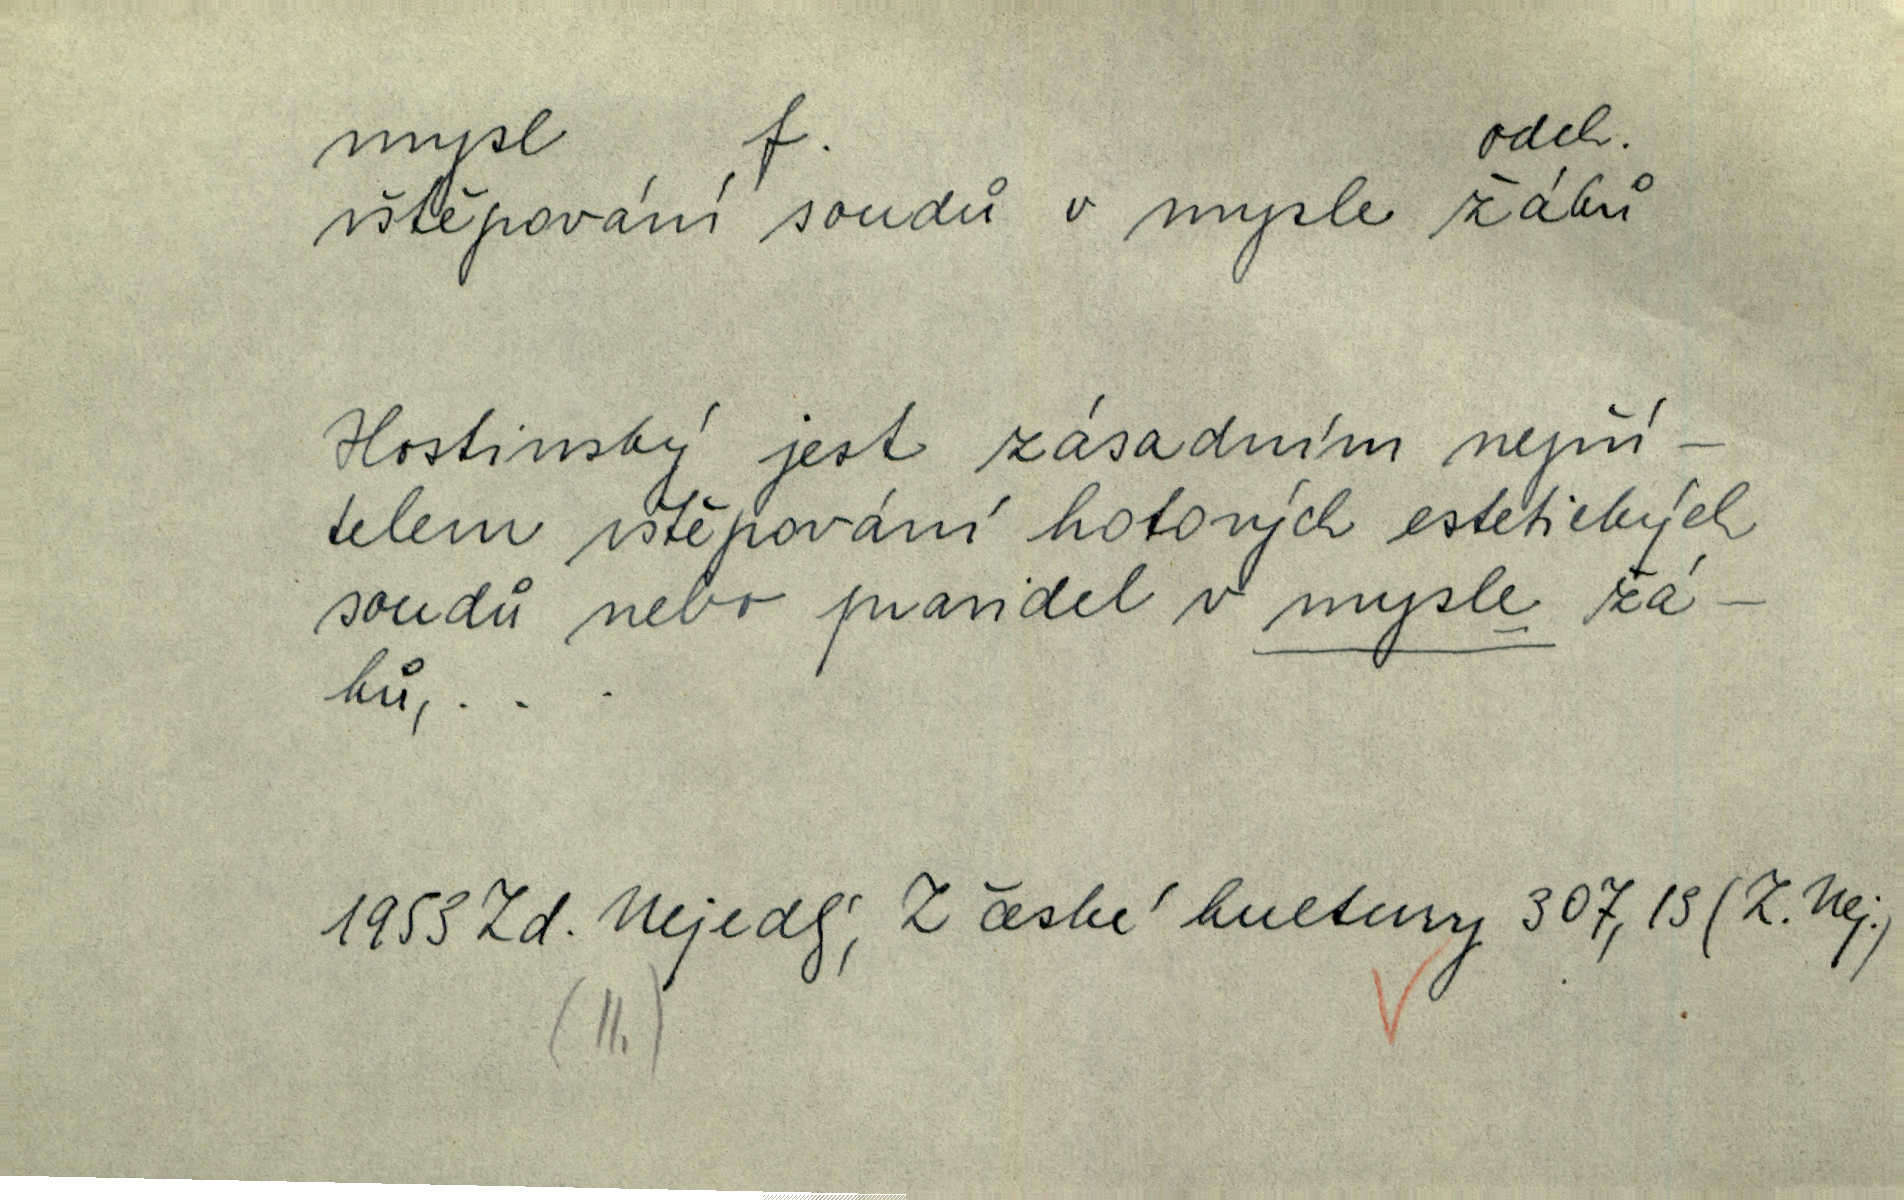 mysl f. odch.
vštěpování soudů v mysle žáků
Hostinský jest zásadním nepří-
telem vštěpování hotových estetických
soudů nebo pravidel v mysle žá-
ků, . . .
1953 Zd. Nejedlý, Z české kultury 307, 13 (Z. Nej.)
(II.)